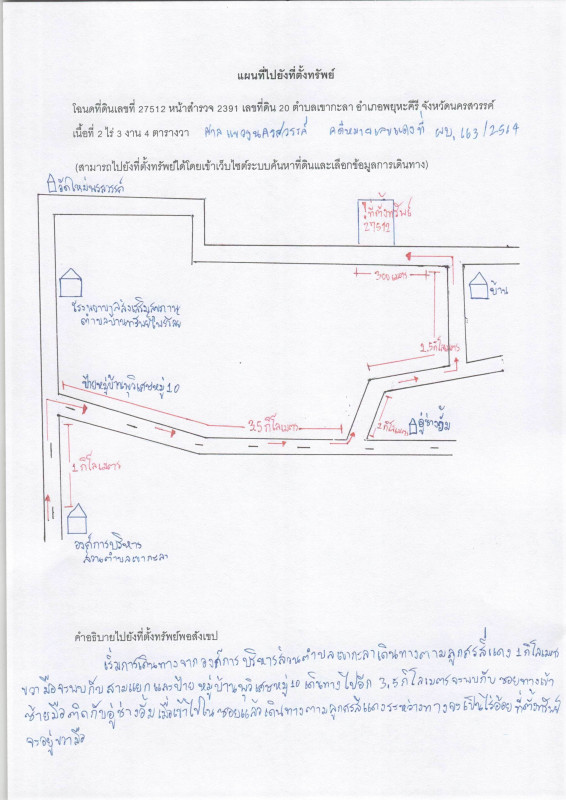 แผนที่ไปยังที่ตั้งทรัพย์
โฉนดที่ดินเลขที่ 27512 หน้าสำรวจ 2391 เลขที่ดิน 20 ตำบลเขากะลา อำเภอพยุหะคีรี จังหวัดนครสวรรค์
เนื้อที่ 2 ไร่ 3 งาน 4 ตารางวา ศาลแขวงนครสวรรค์ คดีหมายเลขแดงที่ ผบ. 163/2564
(สามารถไปยังที่ตั้งทรัพย์ได้โดยเข้าเว็บไซต์ระบบค้นหาที่ดินและเลือกข้อมูลการเดินทาง)
ที่ตั้งทรัพย์
27512
300 เมตร
บ้าน
โรงพยาบาลส่งเสริมสุขภาพ
2.5 กิโลเมตร
ป้ายหมู่บ้านพุวิเศษหมู่ 10
3.5 กิโลเมตร
กิโลเมตร
อู่ช่างอั้ม
1 กิโลเมตร
องค์การบริหาร
ส่วนตำบลเขากะลา
คำอธิบายไปยังที่ตั้งทรัพย์พอสังเขป
เริ่มการเดินทางจากองค์การบริหารส่วนตำบลเขากะลาเดินทางตามลูกศรสีแดง 1 กิโลเมตร
ขวามือจะพบกับสามแยกและป้ายหมู่บ้านพุวิเศษหมู่ 10 เดินทางไปอีก 3.5 กิโลเมตรจะพบกับซอยทางเข้า
ซ้ายมือติดกับอู่ช่างอั้มเมื่อเข้าไปในซอยแล้วเดินทางตามลูกศรสีแดงระหว่างทางจะเป็นไร่อ้อย ที่ตั้งทรัพย์
จะอยู่ขวามือ